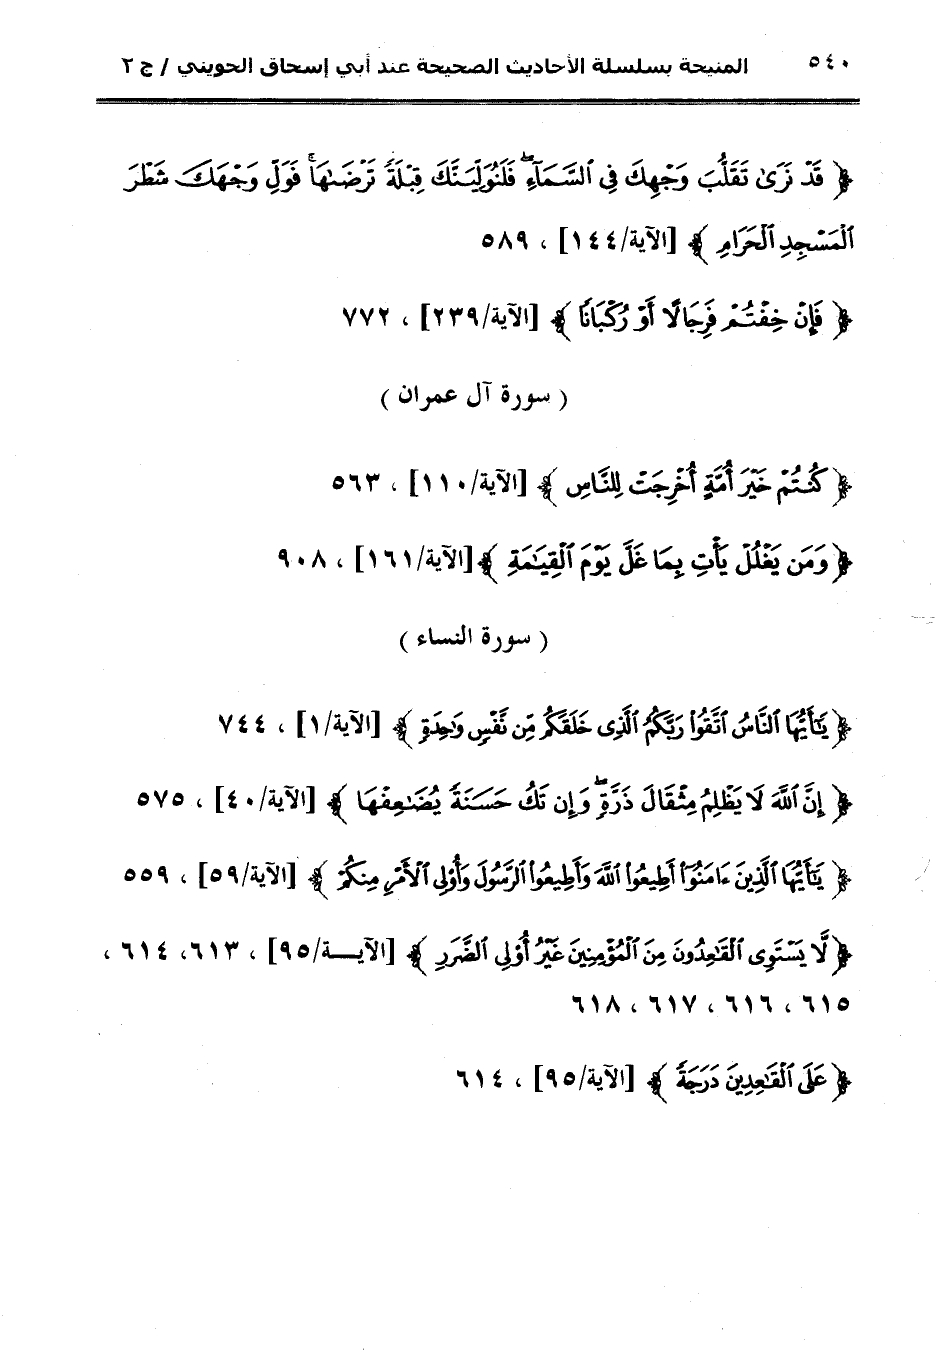 ٥٤٠ المنيحة بسلسلة الأحاديث الصحيحة عند أبي إسحاق الحويني / ج ٢
﴿ قَدْ نَرَىٰ تَقَلُّبَ وَجْهِكَ فِي ٱلسَّمَآءِ ۖ فَلَنُوَلِّيَنَّكَ قِبْلَةً تَرْضَىٰهَا ۚ فَوَلِّ وَجْهَكَ شَطْرَ
ٱلْمَسْجِدِ ٱلْحَرَامِ ﴾ [الآية/١٤٤] ، ٥٨٩
﴿ فَإِنْ خِفْتُمْ فَرِجَالًا أَوْ رُكْبَانًا ﴾ [الآية/٢٣٩] ، ٧٧٢
( سورة آل عمران )
﴿ كُنتُمْ خَيْرَ أُمَّةٍ أُخْرِجَتْ لِلنَّاسِ ﴾ [الآية/١١٠] ، ٥٦٣
﴿ وَمَن يَغْلُلْ يَأْتِ بِمَا غَلَّ يَوْمَ ٱلْقِيَٰمَةِ ﴾ [الآية/١٦١] ، ٩٠٨
( سورة النساء )
﴿ يَٰٓأَيُّهَا ٱلنَّاسُ ٱتَّقُوا۟ رَبَّكُمُ ٱلَّذِى خَلَقَكُم مِّن نَّفْسٍ وَٰحِدَةٍ ﴾ [الآية/١] ، ٧٤٤
﴿ إِنَّ ٱللَّهَ لَا يَظْلِمُ مِثْقَالَ ذَرَّةٍ ۖ وَإِن تَكُ حَسَنَةً يُضَٰعِفْهَا ﴾ [الآية/٤٠] ، ٥٧٥
﴿ يَٰٓأَيُّهَا ٱلَّذِينَ ءَامَنُوٓا۟ أَطِيعُوا۟ ٱللَّهَ وَأَطِيعُوا۟ ٱلرَّسُولَ وَأُو۟لِى ٱلْأَمْرِ مِنكُمْ ﴾ [الآية/٥٩] ، ٥٥٩
﴿ لَّا يَسْتَوِى ٱلْقَٰعِدُونَ مِنَ ٱلْمُؤْمِنِينَ غَيْرُ أُو۟لِى ٱلضَّرَرِ ﴾ [الآيـــة/٩٥] ، ٦١٣، ٦١٤ ،
٦١٥ ، ٦١٦ ، ٦١٧ ، ٦١٨
﴿ عَلَى ٱلْقَٰعِدِينَ دَرَجَةً ﴾ [الآية/٩٥] ، ٦١٤